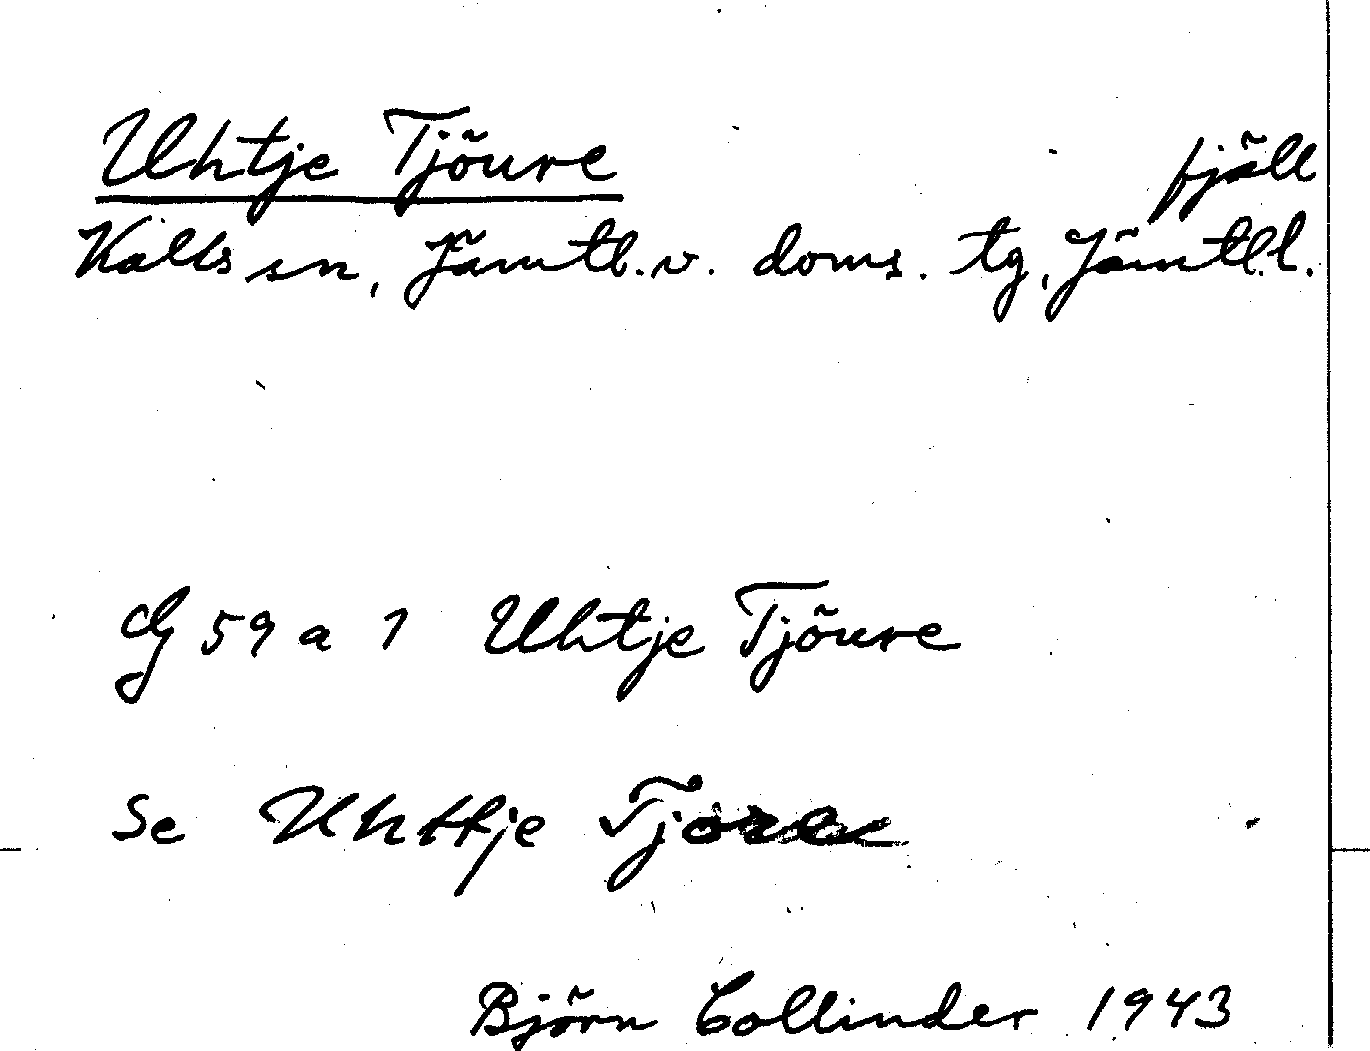 Uhtje Tjöure fjäll
Kalls sn, Jämtl. v. doms. tg, Jämtl. l.
G 59 a 1 Uhtje Tjöure
Se Uhttje
Björn Collinder 1943